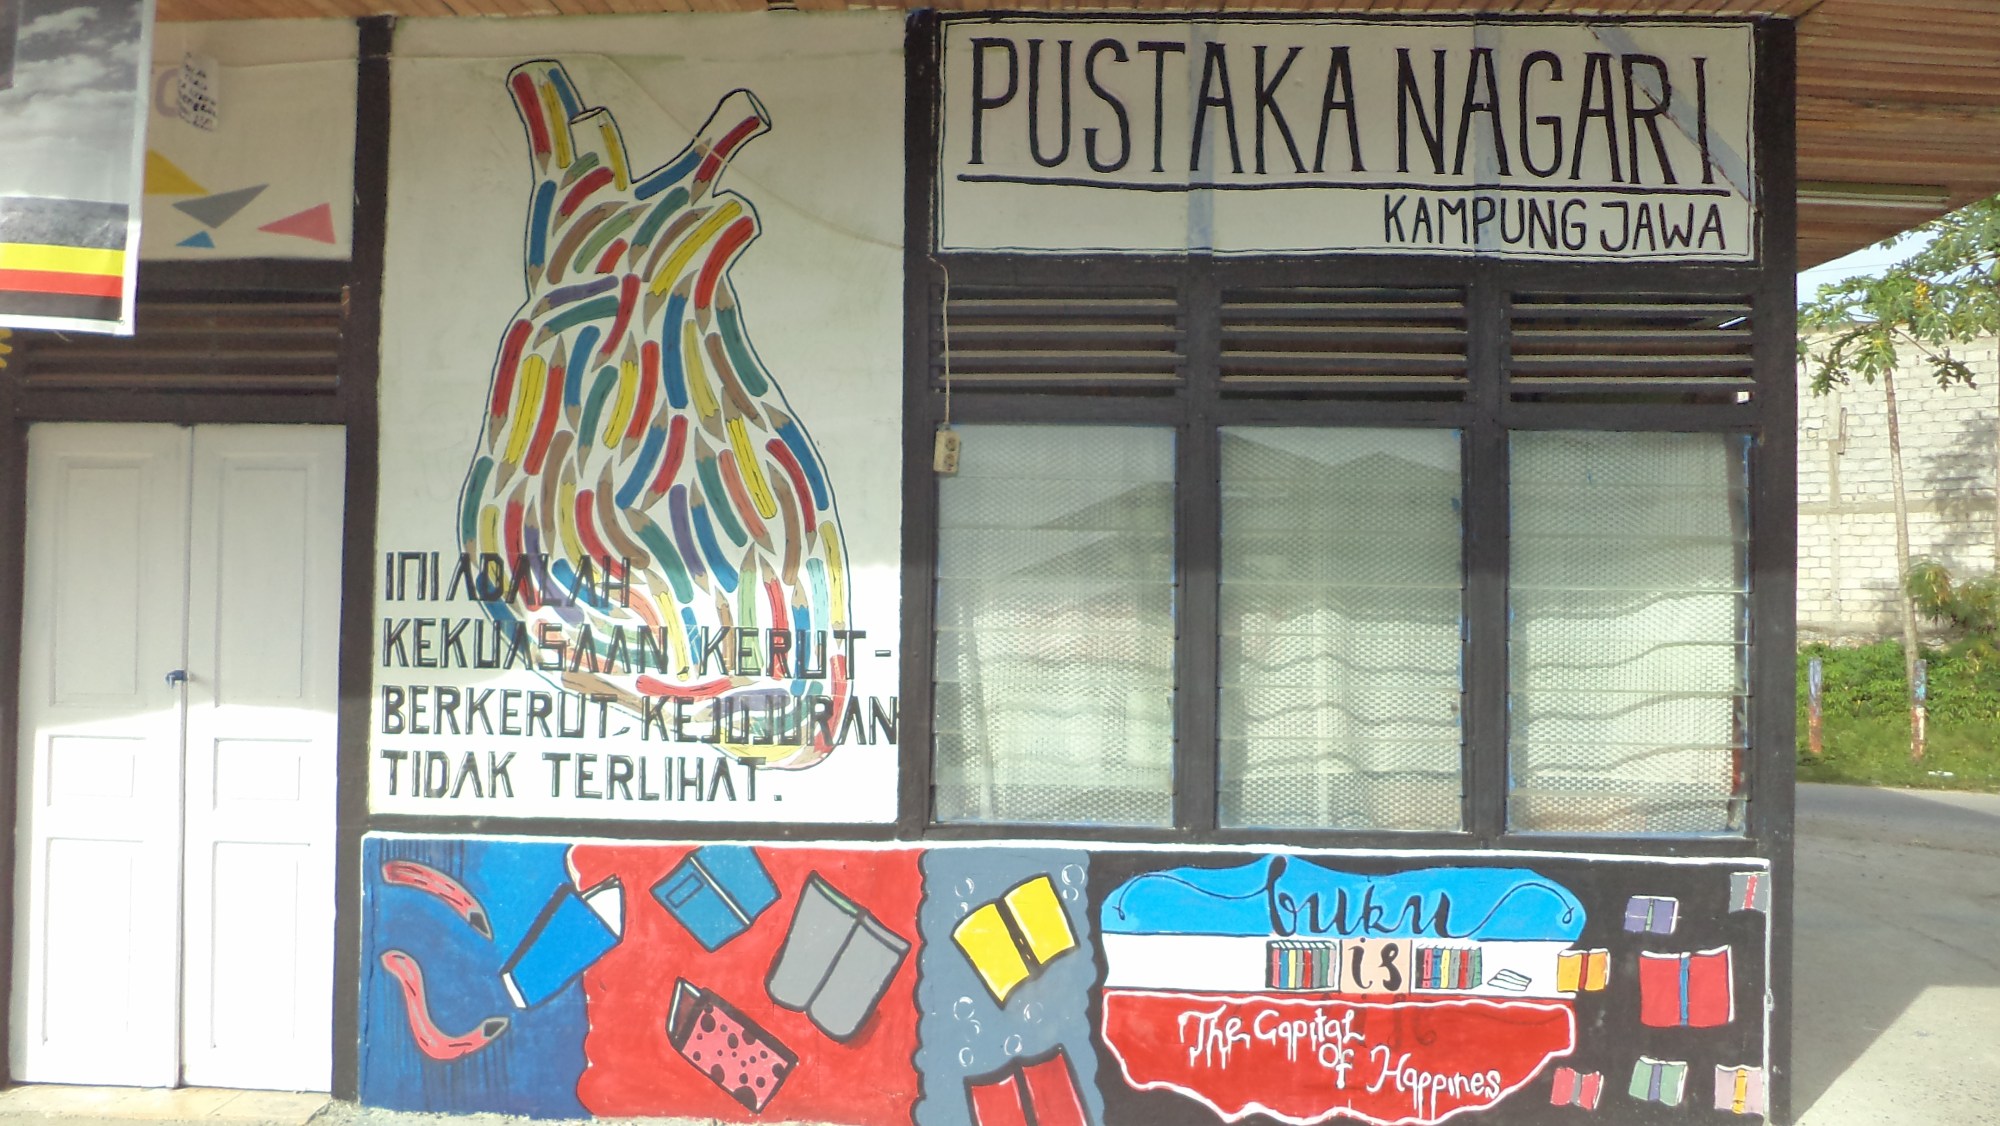 PUSTAKA NAGARI
KAMPUNG JAWA
INI ADALAH
KEKUASAAN, KERUT-
BERKERUT, KEJUJURAN
TIDAK TERLIHAT.
buku
is
The Capital
Of Happines